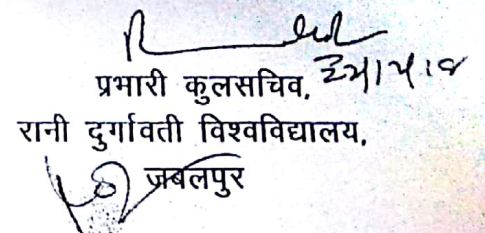 प्रभारी कुलसचिव,
रानी दुर्गावती विश्वविद्यालय,
जबलपुर